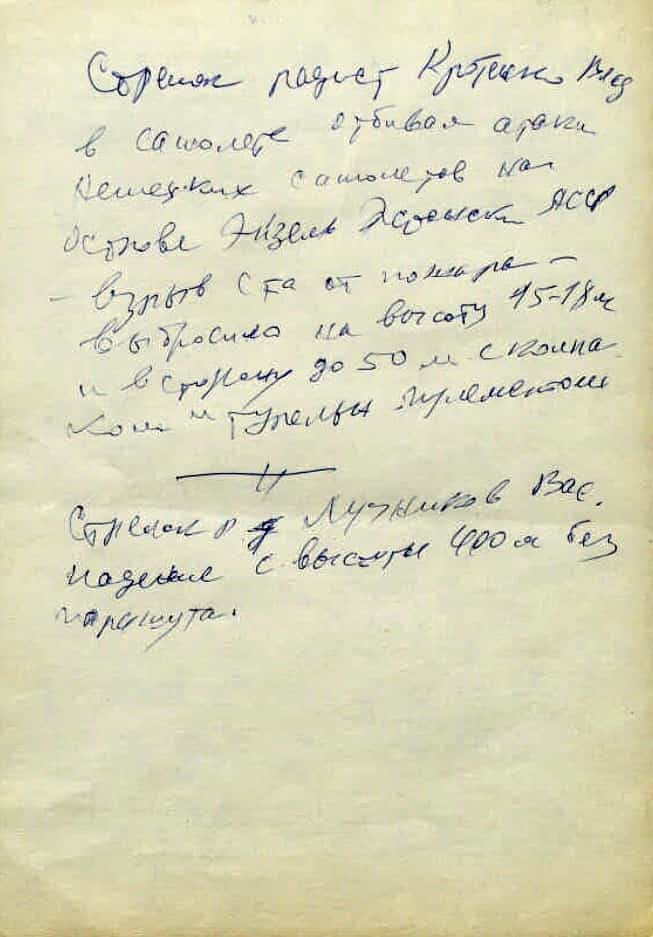 Стрелок радист Кротенко Влад
в самолете отбивая атаки
немецких самолетов на
острове Экзель Эстонской АССР
– взрыв с та от пожара –
выбросило на высоту 15-18 м
и в сторону до 50 м с колпа
ком и турельн. пулеметом
Стрелок р Лузников Вас.
падение с высоты 400 м без
парашута.